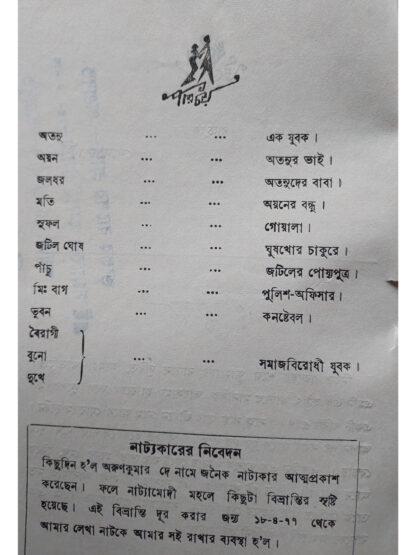 পরিচয়
অতনু ... ... এক যুবক ।
অয়ন ... ... অতনুর ভাই ।
জলধর ... ... অতনুদের বাবা ।
মতি ... ... অয়নের বন্ধু ।
সুফল ... ... গোয়ালা ।
জটিল ঘোষ ... ... ঘুষখোর চাকুরে ।
পাঁচু ... ... জটিলের পোষ্যপুত্র ।
মিঃ বাগ ... ... পুলিশ-অফিসার ।
ভুবন ... ... কনষ্টেবল ।
বৈরাগী
বুনো ... ... সমাজবিরোধী যুবক ।
দুখে
নাট্যকারের নিবেদন
কিছুদিন হ'ল অরুণকুমার দে নামে জনৈক নাট্যকার আত্মপ্রকাশ
করেছেন । ফলে নাট্যামোদী মহলে কিছুটা বিভ্রান্তির সৃষ্টি
হয়েছে । এই বিভ্রান্তি দূর করার জন্য ১৮-৪-৭৭ থেকে
আমার লেখা নাটকে আমার সই রাখার ব্যবস্থা হ'ল ।